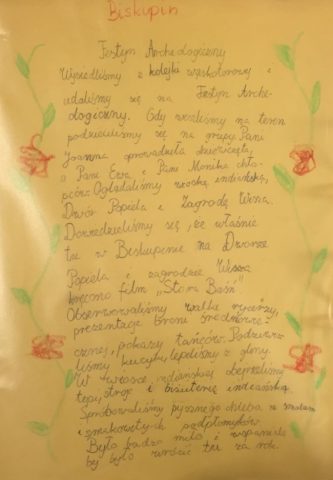 Biskupin
Festyn Archeologiczny
Wysiedliśmy z kolejki wąskotorowej i
udaliśmy się na Festyn Arche-
ologiczny. Gdy weszliśmy na teren
podzieliliśmy się na grupy Pani
Joanna oprowadzała dziewczęta,
a Pani Ewa i Pani Monika chło-
pców. Oglądaliśmy wioskę indiańską,
Dwór Popiela i Zagrodę Wisza.
Dowiedzieliśmy się, że właśnie
tu w Biskupinie na Dworze
Popiela i zagrodzie Wisza
kręcono film "Stara Baśń".
Obserwowaliśmy walkę rycerzy,
prezentację broni średniowie-
cznej, pokazy tańców. Podziwia-
liśmy lepiliśmy z gliny.
W wiosce indiańskiej obejrzeliśmy
tepi, stroje i biżuterię indiańską.
Spróbowaliśmy pysznego chleba ze smalcem
i smakowitych podpłomyków.
Było bardzo miło i wspaniale
by było wrócić tu za rok.